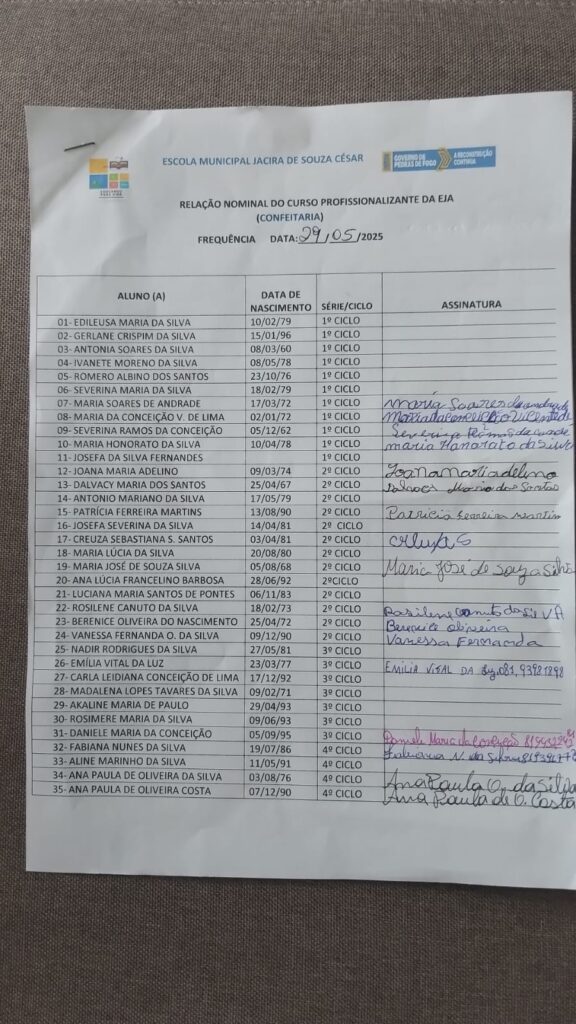 ESCOLA MUNICIPAL JACIRA DE SOUZA CÉSAR
GOVERNO DE PEDRAS DE FOGO A RECONSTRUÇÃO CONTINUA
RELAÇÃO NOMINAL DO CURSO PROFISSIONALIZANTE DA EJA
(CONFEITARIA)
FREQUÊNCIA DATA: 29/05/2025
ALUNO (A) DATA DE NASCIMENTO SÉRIE/CICLO ASSINATURA
01- EDILEUSA MARIA DA SILVA 10/02/79 1º CICLO
02- GERLANE CRISPIM DA SILVA 15/01/96 1º CICLO
03- ANTONIA SOARES DA SILVA 08/03/60 1º CICLO
04- IVANETE MORENO DA SILVA 08/05/78 1º CICLO
05- ROMERO ALBINO DOS SANTOS 23/10/76 1º CICLO
06- SEVERINA MARIA DA SILVA 18/02/79 1º CICLO
07- MARIA SOARES DE ANDRADE 17/03/72 1º CICLO Maria Soares de andrade
08- MARIA DA CONCEIÇÃO V. DE LIMA 02/01/72 1º CICLO Maria da Conceição Vicente de
09- SEVERINA RAMOS DA CONCEIÇÃO 05/12/62 1º CICLO Severina Ramos da
10- MARIA HONORATO DA SILVA 10/04/78 1º CICLO maria Hanarato da Silva
11- JOSEFA DA SILVA FERNANDES 1º CICLO
12- JOANA MARIA ADELINO 09/03/74 2º CICLO Joana Maria adelino
13- DALVACY MARIA DOS SANTOS 25/04/67 2º CICLO Maria dos Santos
14- ANTONIO MARIANO DA SILVA 17/05/79 2º CICLO
15- PATRÍCIA FERREIRA MARTINS 13/08/90 2º CICLO Patricia Ferreira Martin
16- JOSEFA SEVERINA DA SILVA 14/04/81 2º CICLO
17- CREUZA SEBASTIANA S. SANTOS 03/04/81 2º CICLO
18- MARIA LÚCIA DA SILVA 20/08/80 2º CICLO
19- MARIA JOSÉ DE SOUZA SILVA 05/08/68 2º CICLO Maria José de Souza Silva
20- ANA LÚCIA FRANCELINO BARBOSA 28/06/92 2ºCICLO
21- LUCIANA MARIA SANTOS DE PONTES 06/11/83 2º CICLO
22- ROSILENE CANUTO DA SILVA 18/02/73 2º CICLO Rosilene Canuto da SilVA
23- BERENICE OLIVEIRA DO NASCIMENTO 25/04/72 2º CICLO Berenice oliveira
24- VANESSA FERNANDA O. DA SILVA 09/12/90 2º CICLO Vanessa Fernanda
25- NADIR RODRIGUES DA SILVA 27/05/81 3º CICLO
26- EMÍLIA VITAL DA LUZ 23/03/77 3º CICLO EMILIA VITAL DA
27- CARLA LEIDIANA CONCEIÇÃO DE LIMA 17/12/92 3º CICLO
28- MADALENA LOPES TAVARES DA SILVA 09/02/71 3º CICLO
29- AKALINE MARIA DE PAULO 29/04/93 3º CICLO
30- ROSIMERE MARIA DA SILVA 09/06/93 3º CICLO
31- DANIELE MARIA DA CONCEIÇÃO 05/09/95 3º CICLO Daniele Maria da Conceição
32- FABIANA NUNES DA SILVA 19/07/86 4º CICLO Fabiana N. da Silva
33- ALINE MARINHO DA SILVA 11/05/91 4º CICLO
34- ANA PAULA DE OLIVEIRA DA SILVA 03/08/76 4º CICLO Ana Paula O. da Silva
35- ANA PAULA DE OLIVEIRA COSTA 07/12/90 4º CICLO Ana Paula de O. Costa